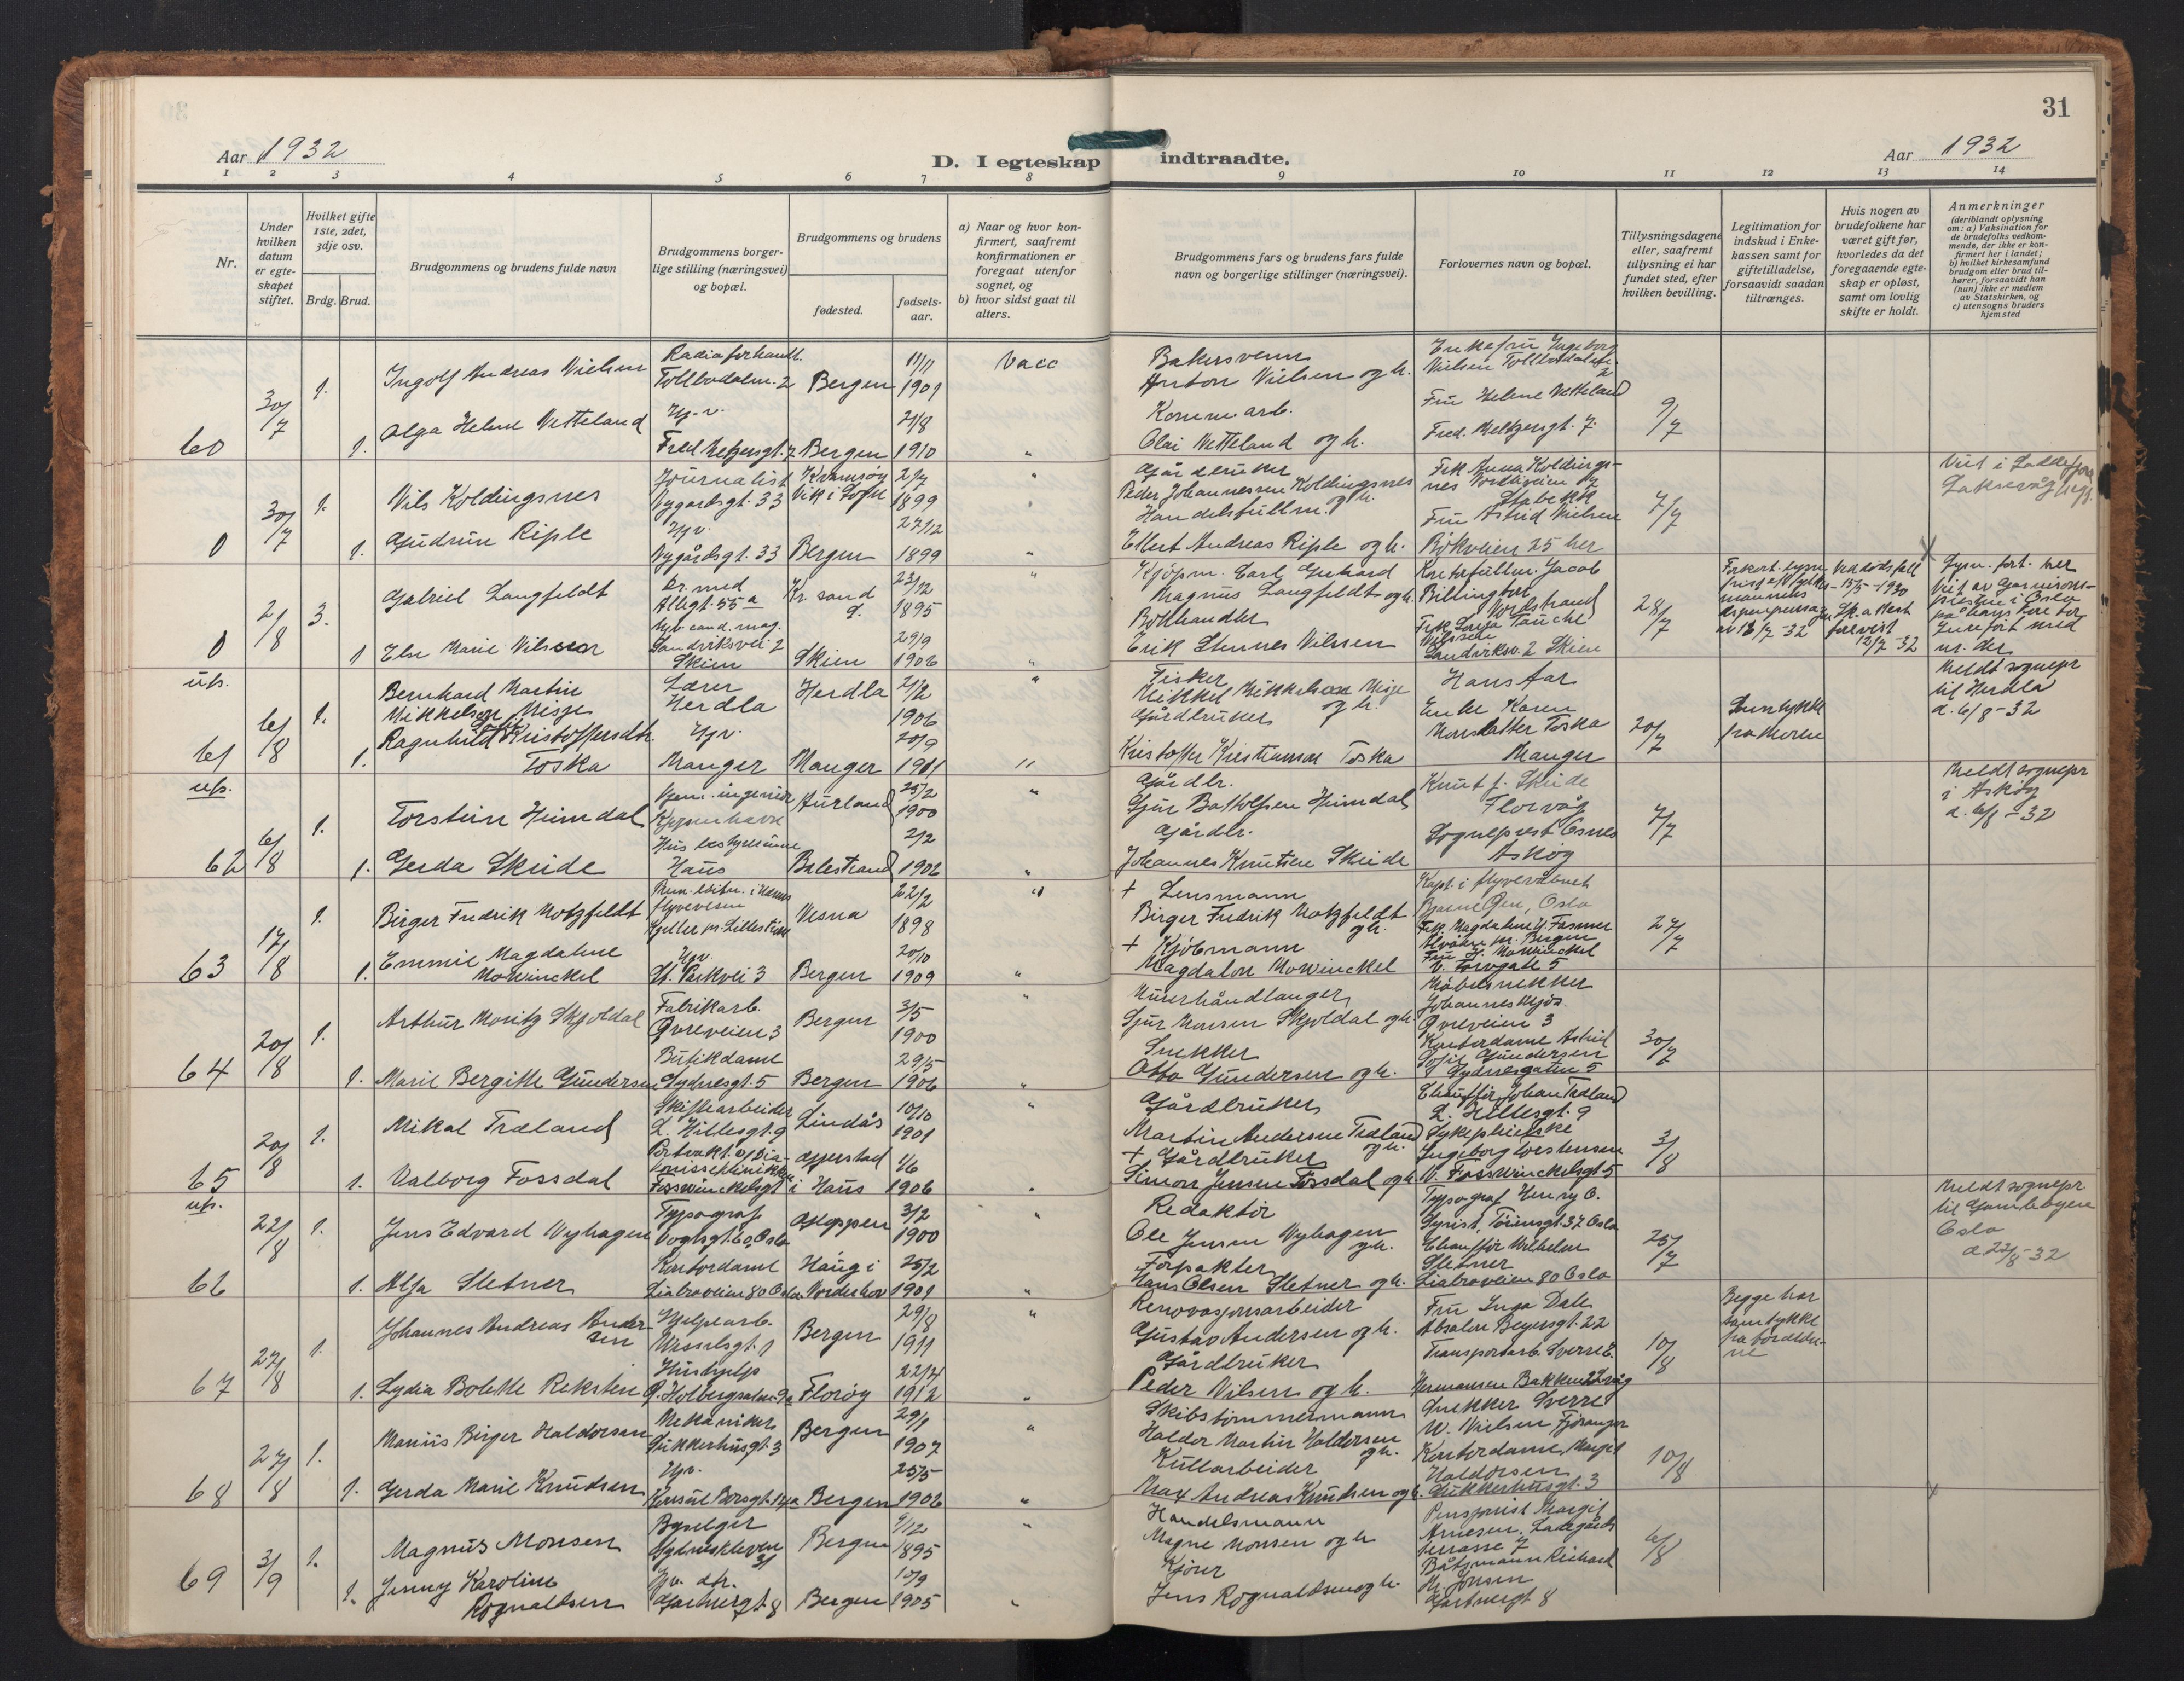 31
Aar 1932
D. I egteskap indtraadte.
Aar 1932
1 2 3 4 5 6 7 8 9 10 11 12 13 14
Nr.
Under hvilken datum er egte-skapet stiftet.
Hvilket gifte 1ste, 2det, 3dje osv.
Brdg. Brud.
Brudgommens og brudens fulde navn
Brudgommens borger-lige stilling (næringsvei) og bopæl.
Brudgommens og brudens
fødested.
fødsels-aar.
a) Naar og hvor kon-firmert, saafremt konfirmationen er foregaat utenfor sognet, og
b) hvor sidst gaat til alters.
Brudgommens fars og brudens fars fulde navn og borgerlige stillinger (næringsvei).
Forlovernes navn og bopæl.
Tillysningsdagene eller, saafremt tillysning ei har fundet sted, efter hvilken bevilling.
Legitimation for indskud i Enke-kassen samt for giftetilladelse, forsaavidt saadan tiltrænges.
Hvis nogen av brudefolkene har været gift før, hvorledes da det foregaaende egte-skap er opløst, samt om lovlig skifte er holdt.
Anmerkninger (deriblandt oplysning om: a) Vaksination for de brudefolks vedkom-mende, der ikke er kon-firmert her i landet; b) hvilket kirkesamfund brudgom eller brud til-hører, forsaavidt han (hun) ikke er medlem av Statskirken, og c) utensogns bruders hjemsted
60 30/7 1. Ingolf Andreas Nielsen Radioforhandl. Tollbodalm. 2 Bergen 11/11 1901 Vacc Bakersvenn Anton Nielsen og h. Enkefru Ingeborg Nielsen Tollbodalm. 2
1. Olga Helene Vetteland Hj. v. Fred Meltzersgt. 7 Bergen 21/8 1910 " Kommarb. Olai Vetteland og h. Fru Helene Vetteland Fred. Meltzersgt. 7. 9/7
0 30/7 1. Nils Koldingsnes Journalist Nygardsgt. 33 Kvamsøy Vik i Sogn 2/7 1899 " Gårdbruker Peder Johannessen Koldingsnes og h. Frk Anna Koldings-nes Stabekk
1. Gudrun Riple Hjv. Nygårdsgt. 33 Bergen 27/12 1899 " Handelsfullm. Ellert Andreas Riple og h. Fru Astrid Nielsen Bøkveien 25 her 7/7 Viet i
0 2/8 3. Gabriel Langfeldt Dr. med Allégt. 55 a Kr. sand S. 23/12 1895 " Kjøpm. Carl Gerhard Magnus Langfeldt og h. Kontorfullm. Jacob Billingtor Nordstrand
1 Else Marie Nilssen Hjv. cand. mag. Landviksvei 2 Skien Skien 29/9 1906 " Bokhandler Erik Stennes Nilssen Frk Sonja Tauche Nilssen Landviksv. 2 Skien 28/7 av 13/7 -32 Ved dødsfall 15/5 -1930 Sk. attest forevist 12/7 -32
uts.
61 6/8 1. Bernhard Martin Mikkelsen Misje Lærer Herdla Herdla 21/2 1906 " Fisker Mikkel Mikkelsen Misje og h. Hans Aar
1. Ragnhild Kristoffersdtr. Toska Hjv. Manger Manger 20/9 1911 " Gårdbruker Kristoffer Kristiansen Toska Enke Karen Monsdatter Toska Manger 20/7 Samtykke fra moren Meldt sognepr til Herdla d. 6/8 -32
uts.
62 6/8 1. Torstein Heimdal Kjem. ingeniør Kjøpenhavn Aurland 25/2 1900 " Gårdbr. Gjur Botholfsen Heimdal Knut J. Skeide Florvåg
1. Gerda Skeide Husbestyrerinne Haus Balestrand 2/2 1902 " Gårdbr. Johannes Knutsen Skeide Sogneprest Osnes Askøy 7/7 Meldt sognepr i Askøy d. 6/8 -32
63 17/8 1. Birger Fredrik Motzfeldt flyvevesen Kjeller pr. Lillestrøm Vesna 22/2 1898 " + Lensmann Birger Fredrik Motzfeldt og h. Kapt. i flyvevåbnet Bjarne Øen, Oslo
1. Emmie Magdalene Mowinckel Hjv. St. Parkvei 3 Bergen 20/10 1909 " + Kjøbmann Magdalon Mowinckel Frk. Magdalene G. Fasmer Alvøen pr. Bergen Fru H. Mowinckel V. Torvgate 5 27/7
64 20/8 1. Arthur Moritz Skjoldal Fabrikarb. Øvreveien 3 Bergen 3/5 1900 " Murerhåndlanger Sjur Monsen Skjoldal og h. Møbelsnekker Johannes Mjøs Øvreveien 3
1. Marie Bergitte Gundersen Butikdame Sydnesgt. 5 Bergen 29/5 1906 " Snekker Otto Gundersen og h. Kontordame Astrid Sofie Gundersen Sydnesgaten 5 30/7
65 20/8 1. Mikal Træland Skiftearbeider L. Hillesgt. 9 Lindås 10/10 1901 " Gårdbruker Martin Andersen Træland og h. Chauffør Johan Træland L. Hillesgt. 9
1. Valborg Fossdal Fosswinckelsgt i Haus 1/6 1906 " + Gårdbruker Simon Jensen Fossdal og h. Sykepleierske Ingeborg Torstensen N. Fosswinckelsgt 5 3/8
uts.
66 22/8 1. Jens Edvard Nyhagen Typograf Vogtsgt. 60, Oslo Gjeppen 3/2 1900 " Redaktør Ole Jensen Nyhagen og h. Typograf Henny O. Syrist, Tøiensgt. 37 Oslo
1. Alfa Sletner Kontordame Liabroveien 80 Oslo Haug i Norderhov 25/2 1901 " Forpakter Hans Olsen Sletner og h. Chauffør Wilhelm Sletner Liabroveien 80 Oslo 25/7 Meldt sognepr til Gamlebyen Oslo d 22/8 -32
67 27/8 1. Johannes Andreas Andersen Hjelpearb. Wesselsgt. 1 Bergen 29/8 1911 " Renovasjonsarbeider Gustav Andersen og h. Fru Inga Dale Absalon Beyersgt. 22
1. Lydia Bolette Reksten Hushjelp L. Holbergsalm. 9a Florøy 22/4 1912 " Gårdbruker Peder Nilsen og h. Transportarb. Sverre E. Hermansen Bakken 10/8 Begge har samtykke fra foreldre-ne
68 27/8 1. Marius Birger Haldorsen Mekaniker Sukkerhusgt. 3 Bergen 29/1 1907 " Skibstømmermann Haldor Martin Haldorsen og h. Snekker Sverre W. Nielsen Fjøsanger
1. Gerda Marie Knudsen Hjv. Konsul Børsgt. 14a Bergen 25/5 1906 " Kullarbeider Max Andreas Knudsen og h. Kontordame Margit Haldorsen Sukkerhusgt. 3 10/8
69 3/9 1. Magnus Monsen Byselger Sydneskleven 31 Bergen 9/12 1895 " Handelsmann Magne Monsen og h Pensjonist Margit Arnesen, Ladegårds terrasse 7
1. Jenny Karoline Rognaldsen Hjv. dtr. Gartnergt. 8 Bergen 10/9 1905 " Kjører Jens Rognaldsen og h. Båtsmann Richard Hr. Jonsen Gartnergt 8 6/8